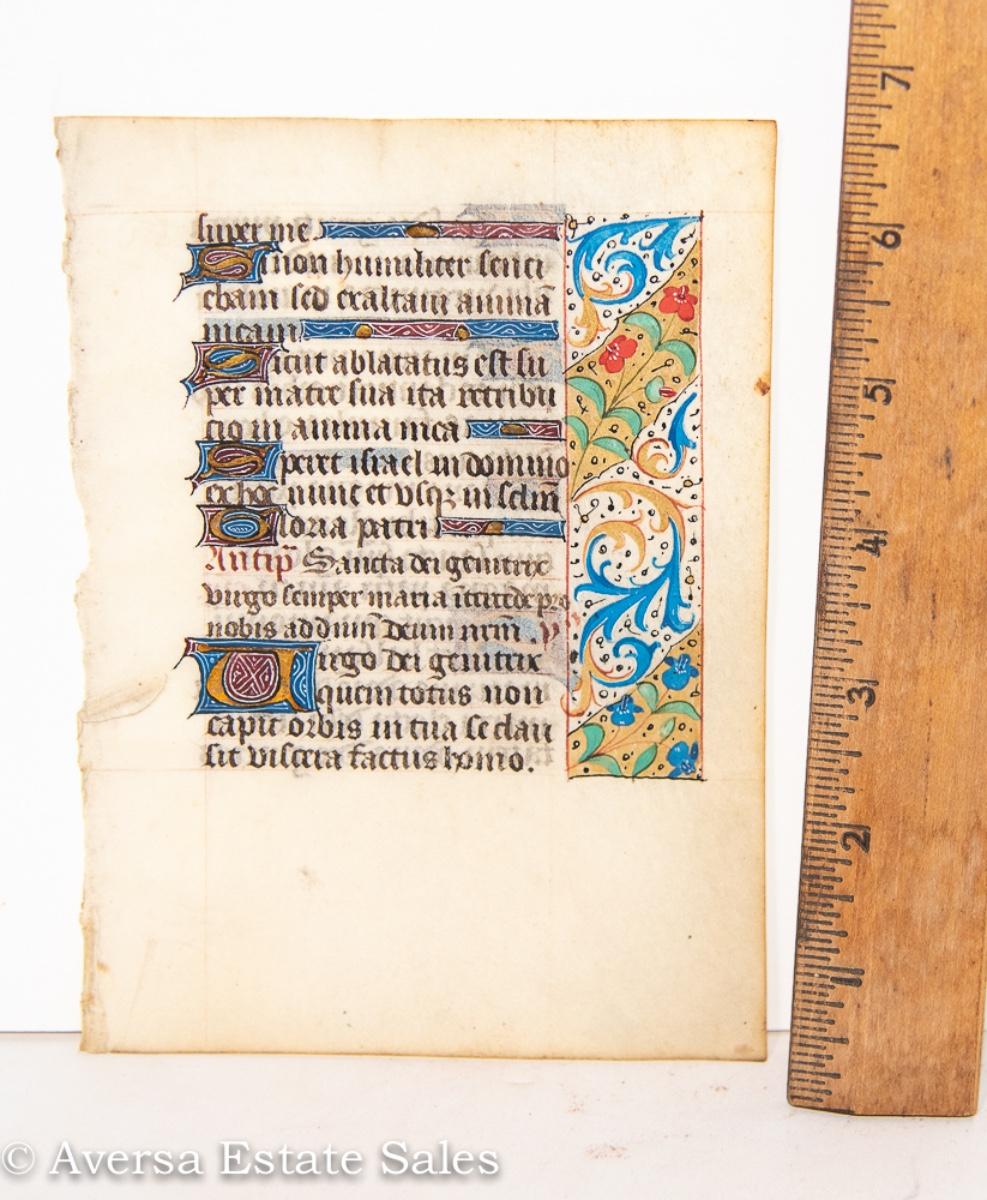 super me
Si non humiliter senti
ebam sed exaltaui animā
meam
Sicut ablatatus est su
per matre sua ita retribu
cio in anima mea
Speret israel in domino
ex hoc nunc et vsqꝫ in sclm̄
Gloria patri
Antip̄ Sancta dei genitrix
virgo semper maria ītercede pro
nobis ad dnm̄ deum nrm̄
Virgo dei genitrix
quem totus non
capit orbis in tua se clau
sit viscera factus homo.
7
6
5
4
3
2
1
© Aversa Estate Sales